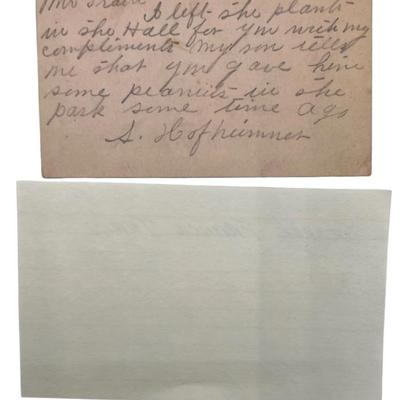 Mr Train
I left the plants
in the Hall for you with my
compliments My son tells
me that you gave him
some peanuts in the
park some time ago
S. Hofheimner